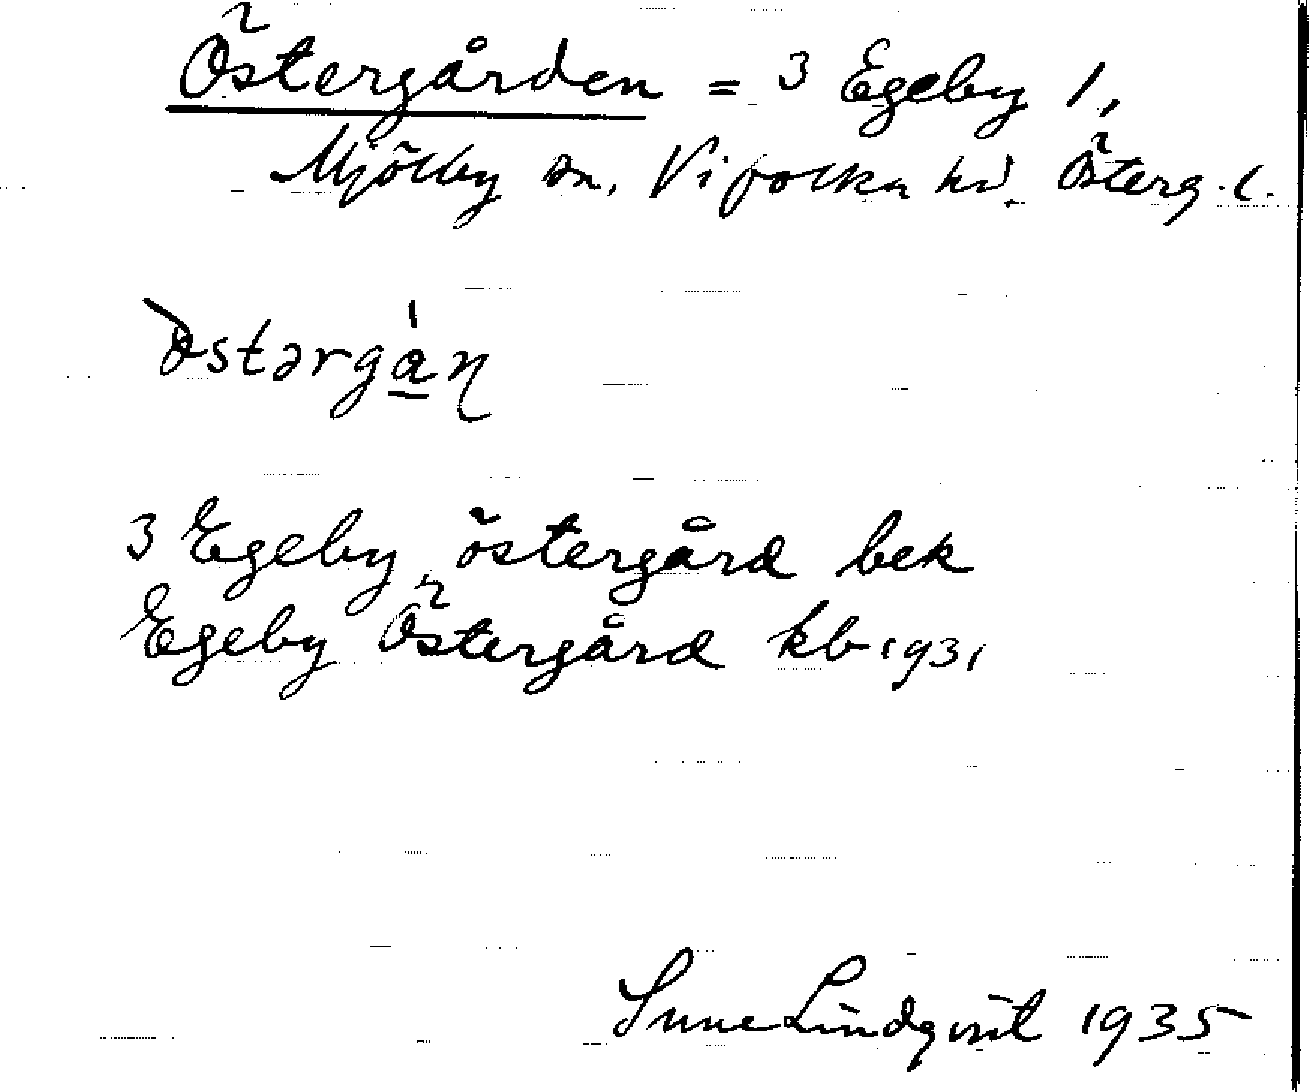 Östergården = 3 Egeby 1,
Mjölby sn. Vifolka hd. Österg. l.
östərgá̱ɳ
3 Egeby, östergård bek
Egeby Östergård kb 1931
Sune Lindqvist 1935